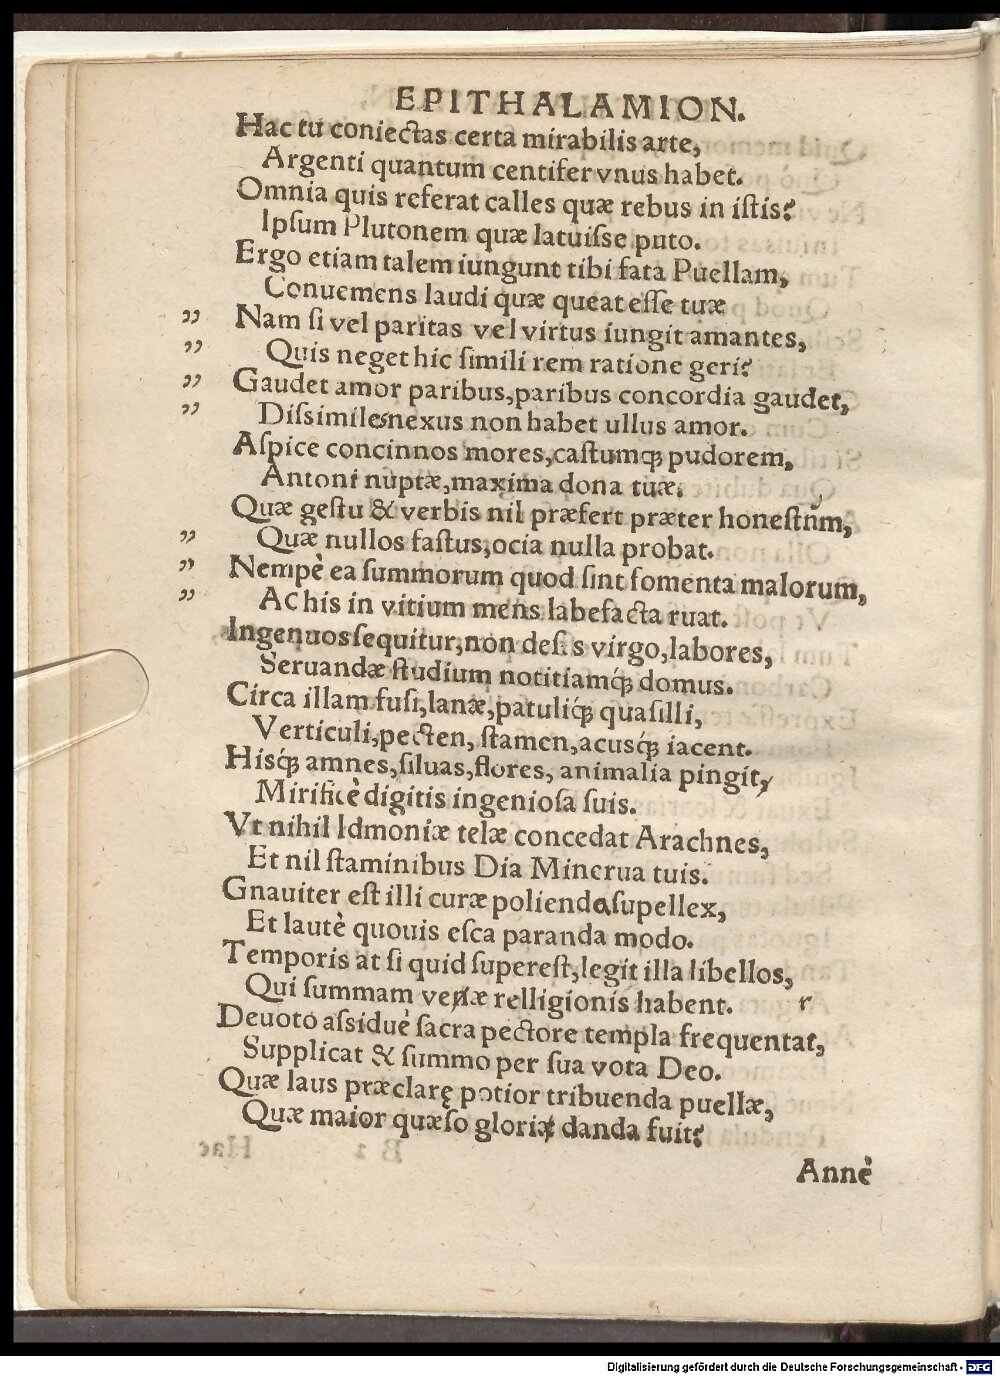 EPITHALAMION.
Hac tu coniectas certa mirabilis arte,
Argenti quantum centifer vnus habet.
Omnia quis referat calles quæ rebus in istis?
Ipsum Plutonem quæ latuisse puto.
Ergo etiam talem iungunt tibi fata Puellam,
Conuemens laudi quæ queat esse tuæ
„ Nam si vel paritas vel virtus iungit amantes,
„ Quis neget hic simili rem ratione geri?
„ Gaudet amor paribus, paribus concordia gaudet,
„ Dissimiles nexus non habet ullus amor.
Aspice concinnos mores, castumq́; pudorem,
Antoni nuptæ, maxima dona tuæ.
Quæ gestu & verbis nil præfert præter honestum,
„ Quæ nullos fastus, ocia nulla probat.
„ Nempè ea summorum quod sint fomenta malorum,
„ Ac his in vitium mens labefacta ruat.
Ingenuos sequitur, non deses virgo, labores,
Seruandæ studium notitiamq́; domus.
Circa illam fusi, lanæ, patuliq́; quasilli,
Verticuli, pecten, stamen, acusq́; iacent.
Hisq́; amnes, siluas, flores, animalia pingit,
Mirificè digitis ingeniosa suis.
Vt nihil Idmoniæ telæ concedat Arachnes,
Et nil staminibus Dia Minerua tuis.
Gnauiter est illi curæ polienda supellex,
Et lautè quouis esca paranda modo.
Temporis at si quid superest, legit illa libellos,
Qui summam veræ relligionis habent. r
Deuoto assiduè sacra pectore templa frequentat,
Supplicat & summo per sua vota Deo.
Quæ laus præclarę potior tribuenda puellæ,
Quæ maior quæso gloria danda fuit?
Annè
Digitalisierung gefördert durch die Deutsche Forschungsgemeinschaft - DFG